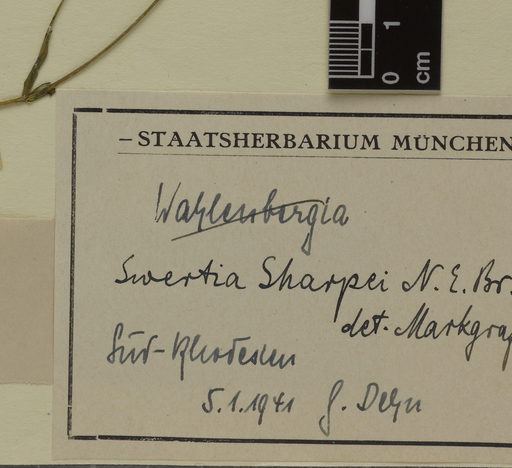 1
0
cm
– STAATSHERBARIUM MÜNCHEN
Wahlenbergia
Swertia Sharpei N. E. Br.
det. Markgra
Süd-Rhodesien
5.1.1941 G. Dehn